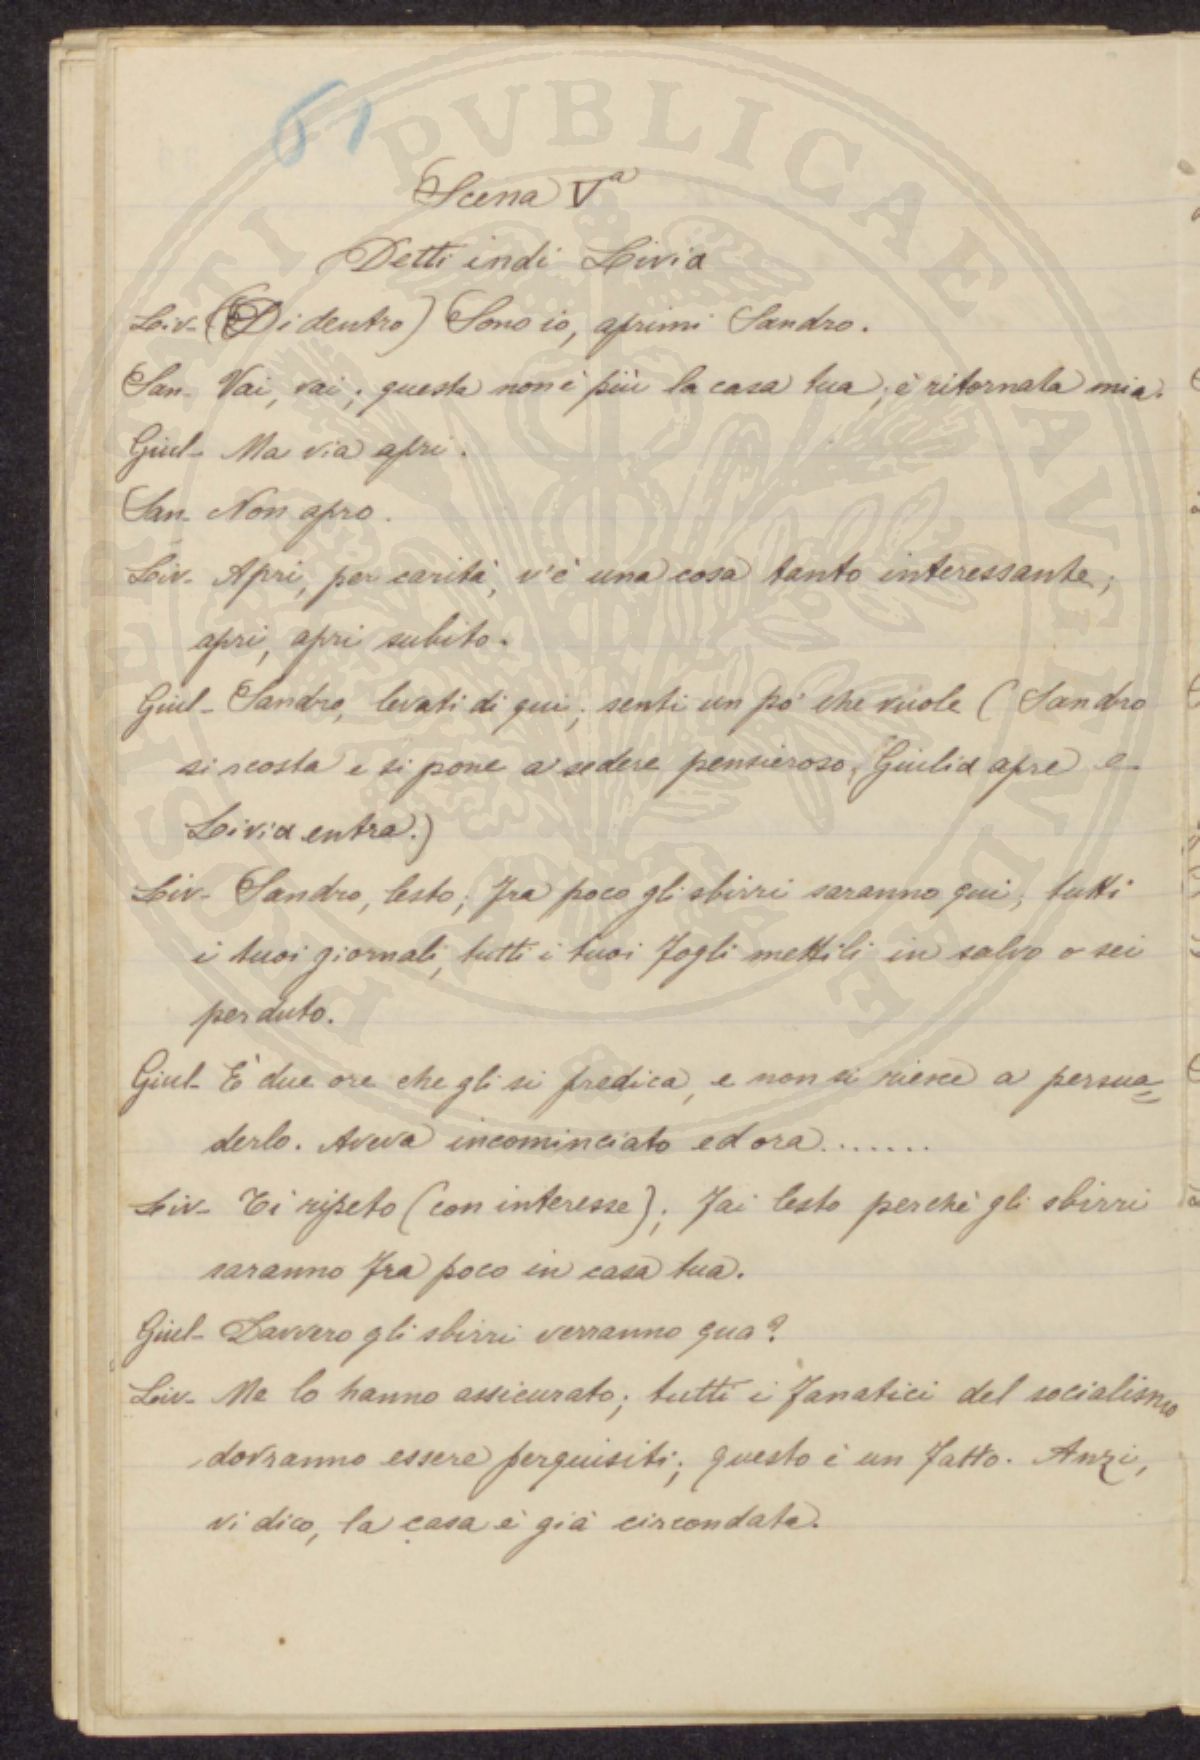 61
Scena Vª
Detti indi Livia
Liv- (Di dentro) Sono io, aprimi Sandro.
San- Vai, vai; questa non è più la casa tua; è ritornata mia.
Giul- Ma via apri.
San- Non apro.
Liv- Apri, per carità, v'è una cosa tanto interessante;
apri, apri subito.
Giul- Sandro, levati di qui; senti un pò che vuole (Sandro
si scosta e si pone a sedere pensieroso, Giulia apre e
Livia entra.)
Liv- Sandro, lesto; fra poco gli sbirri saranno qui, tutti
i tuoi giornali, tutti i tuoi fogli mettili in salvo o sei
perduto.
Giul- È due ore che gli si predica, e non si riesce a persua=
derlo. Aveva incominciato ed ora.......
Liv- Ti ripeto (con interesse); fai lesto perchè gli sbirri
saranno fra poco in casa tua.
Giul- Davvero gli sbirri verranno qua?
Liv- Me lo hanno assicurato; tutti i fanatici del socialismo
dovranno essere perquisiti; questo è un fatto. Anzi,
vi dico, la casa è già circondata.